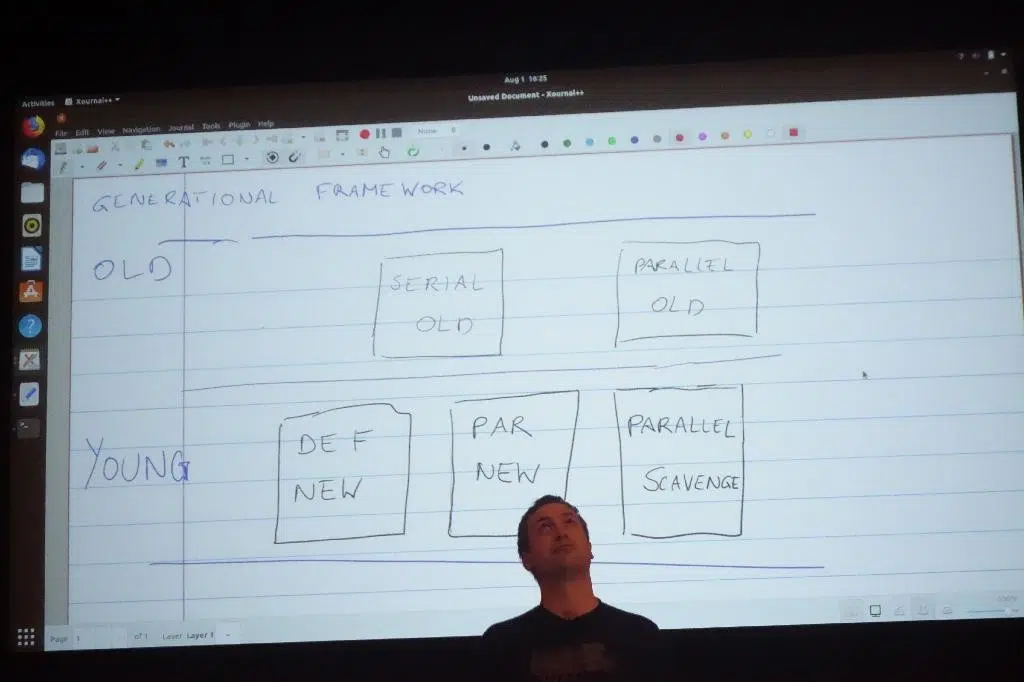 Aug 1 16:25
Activities Xournal++
Unsaved Document - Xournal++
File Edit View Navigation Journal Tools Plugin Help
None
T
GENERATIONAL FRAMEWORK
OLD
SERIAL
OLD
PARALLEL
OLD
YOUNG
DEF
NEW
PAR
NEW
PARALLEL
SCAVENGE
Page 1 of 1 Layer Layer 1